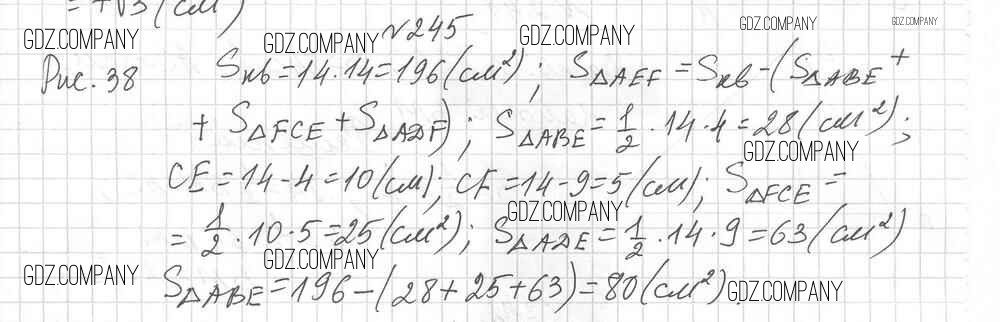 = 4√3 (см)
GDZ.COMPANY GDZ.COMPANY №245 GDZ.COMPANY GDZ.COMPANY GDZ.COMPANY
Рис. 38 Sкв = 14·14 = 196 (см²); S△AEF = Sкв - (S△ABE +
+ S△FCE + S△ADF); S△ABE = 1/2 · 14 · 4 = 28 (см²);
GDZ.COMPANY
CE = 14 - 4 = 10 (см); CF = 14 - 9 = 5 (см); S△FCE =
GDZ.COMPANY
= 1/2 · 10 · 5 = 25 (см²); S△ADE = 1/2 · 14 · 9 = 63 (см²)
GDZ.COMPANY GDZ.COMPANY
S△ABE = 196 - (28 + 25 + 63) = 80 (см²). GDZ.COMPANY